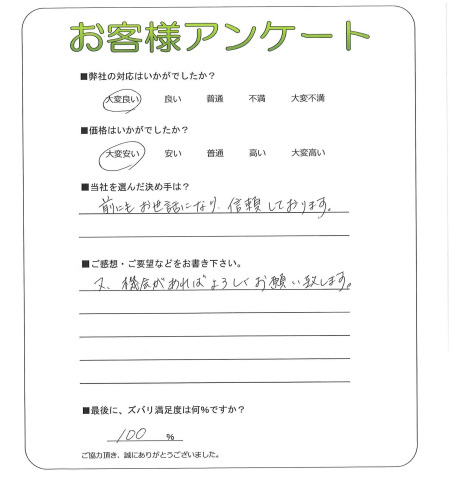 お客様アンケート
■弊社の対応はいかがでしたか？
大変良い 良い 普通 不満 大変不満
■価格はいかがでしたか？
大変安い 安い 普通 高い 大変高い
■当社を選んだ決め手は？
前にもお世話になり、信頼しております。
■ご感想・ご要望などをお書き下さい。
又、機会があればよろしくお願い致します。
■最後に、ズバリ満足度は何%ですか？
100 %
ご協力頂き、誠にありがとうございました。